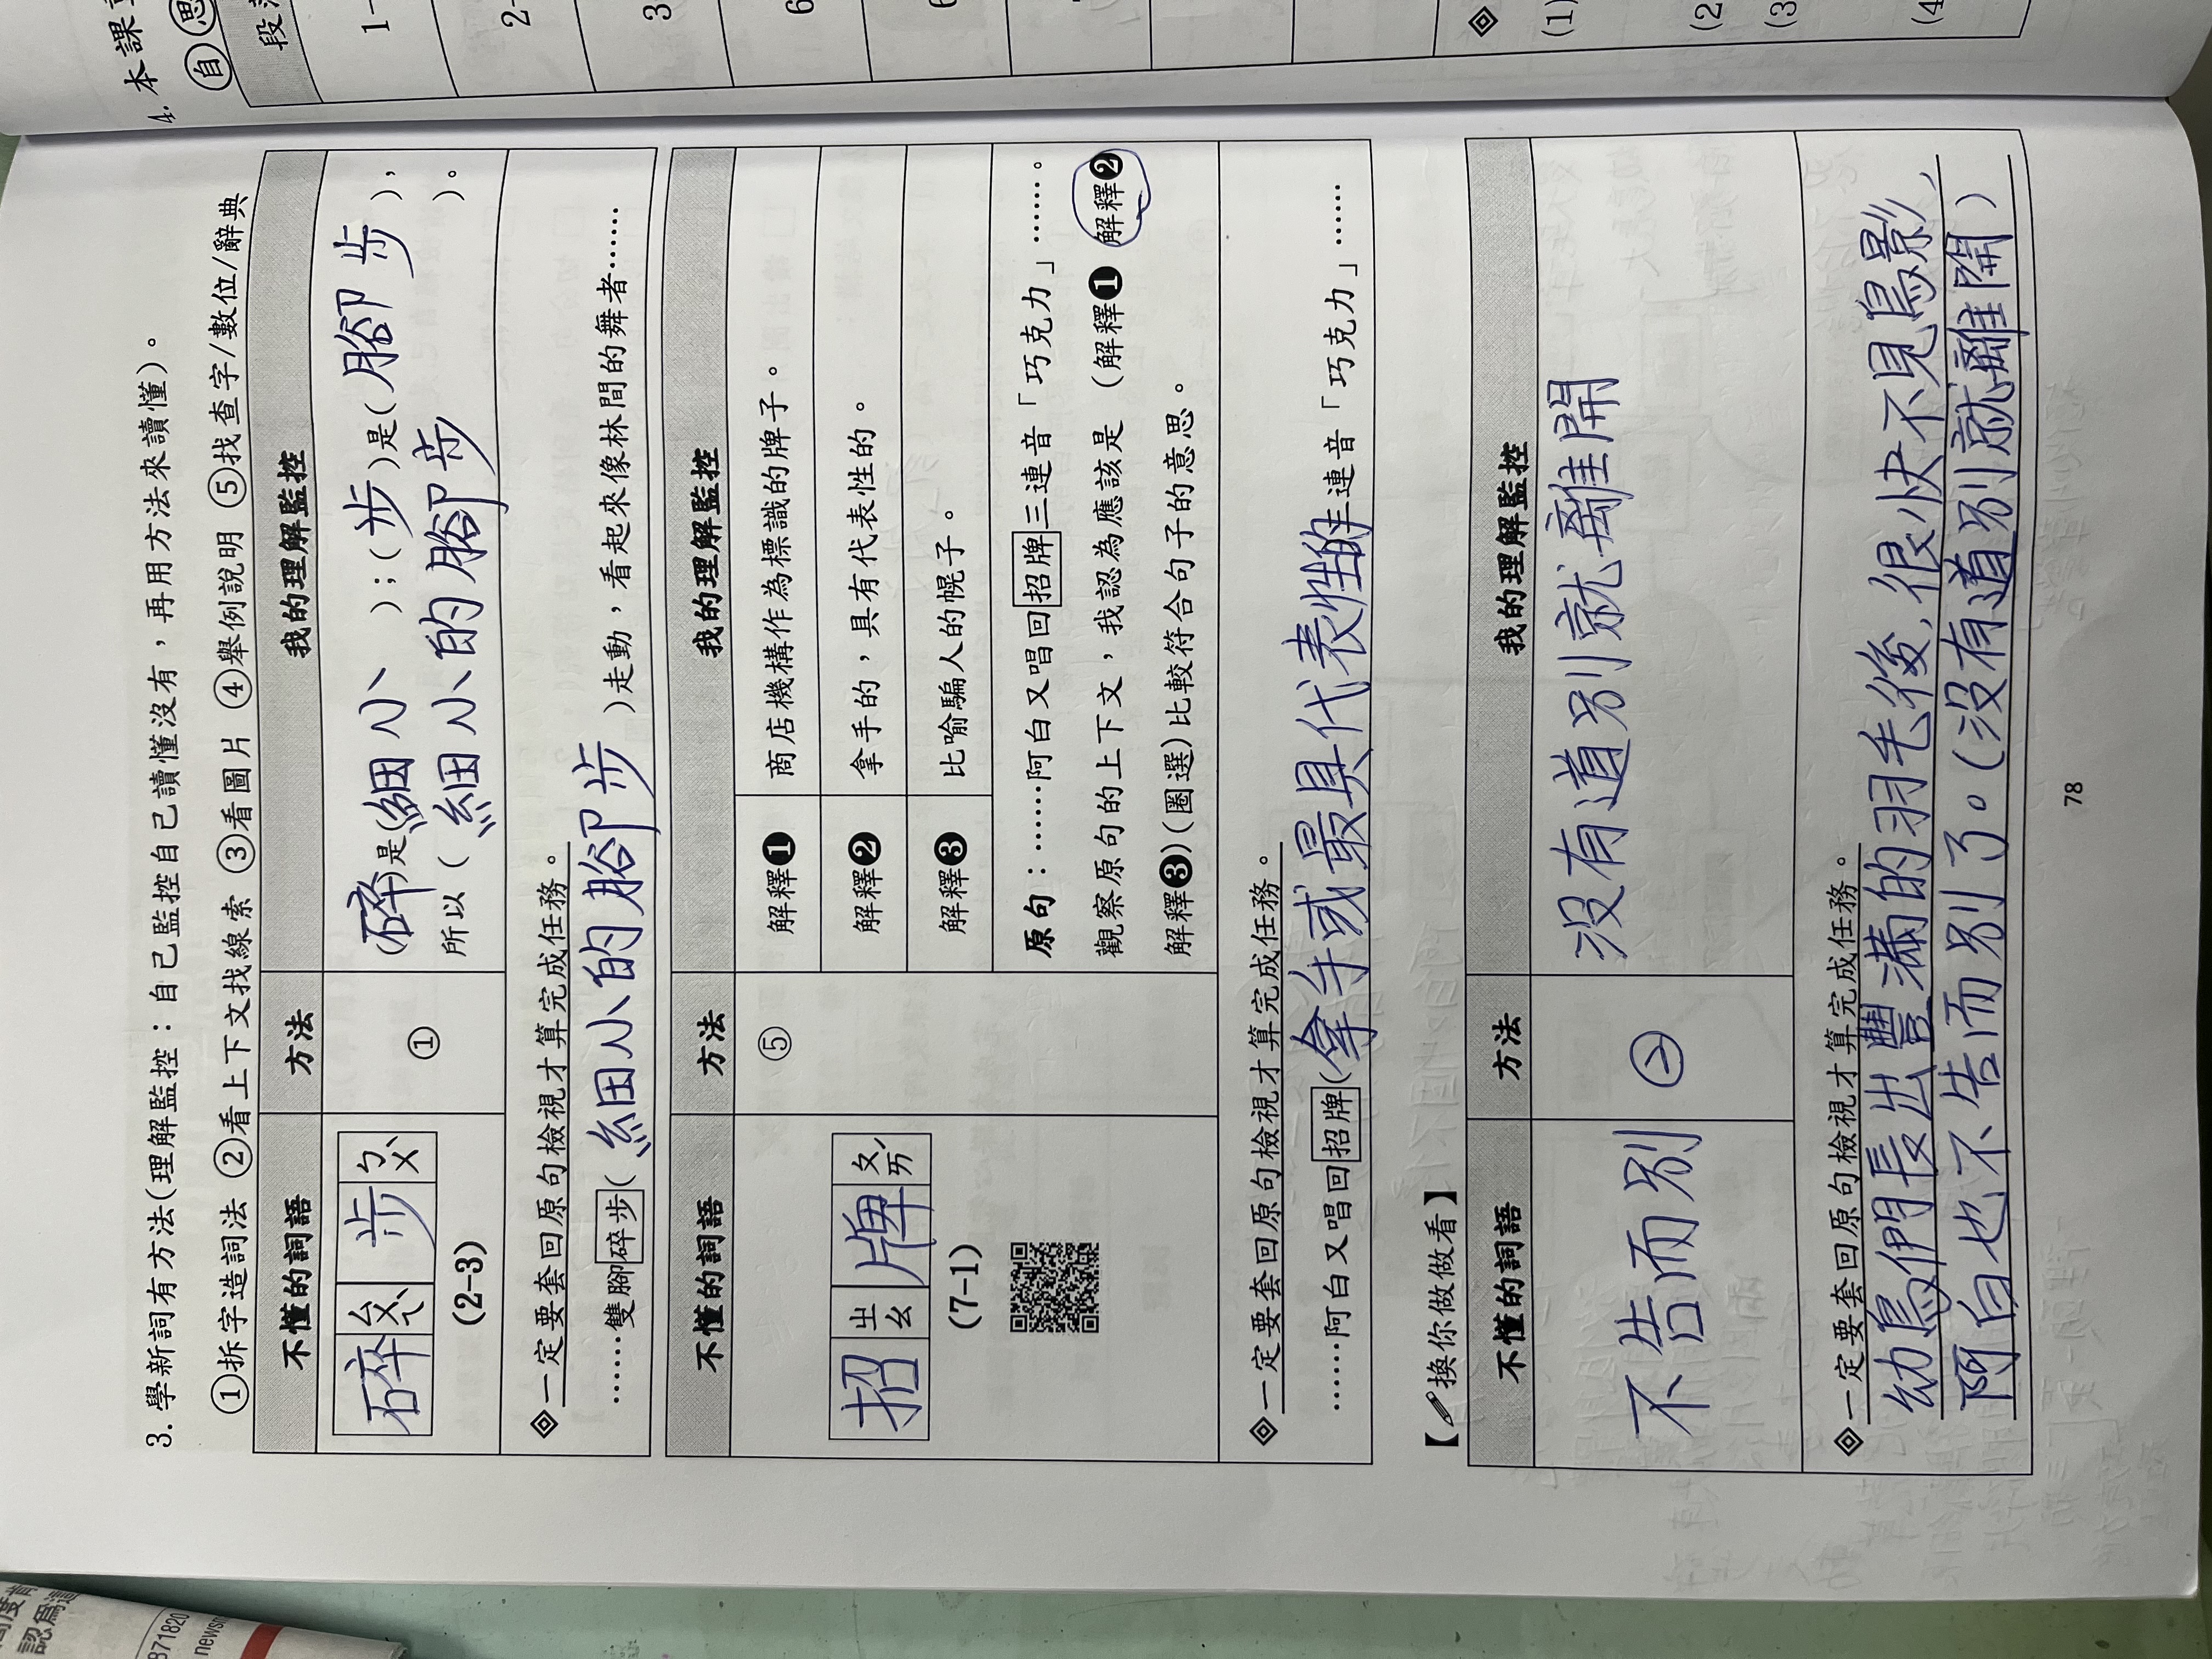 4. 本課
自 思
段
1-
2-
3
6
◈
(1)
(2
(3
(4
3. 學新詞有方法(理解監控：自己監控自己讀懂沒有，再用方法來讀懂)。
①拆字造詞法 ②看上下文找線索 ③看圖片 ④舉例說明 ⑤找查字/數位/辭典
不懂的詞語 方法 我的理解監控
碎 ㄙㄨㄟˋ 步 ㄅㄨˋ
(2-3)
①
(碎)是(細小);(步)是(腳步),
所以(細小的腳步)。
◈一定要套回原句檢視才算完成任務。
……雙腳碎步(細小的腳步)走動，看起來像林間的舞者……
不懂的詞語 方法 我的理解監控
招 ㄓㄠ 牌 ㄆㄞˊ
(7-1)
⑤
解釋❶ 商店機構作為標識的牌子。
解釋❷ 拿手的，具有代表性的。
解釋❸ 比喻騙人的幌子。
原句：……阿白又唱回招牌三連音「巧克力」……。
觀察原句的上下文，我認為應該是(解釋❶ 解釋❷
解釋❸)(圈選)比較符合句子的意思。
◈一定要套回原句檢視才算完成任務。
……阿白又唱回招牌(拿手或最具代表性的三連音「巧克力」……
【換你做做看】
不懂的詞語 方法 我的理解監控
不告而別
②
沒有道別就離開
◈一定要套回原句檢視才算完成任務。
幼鳥們長出豐滿的羽毛後，很快不見鳥影，
阿白也不告而別了。(沒有道別就離開)
78
871820
news